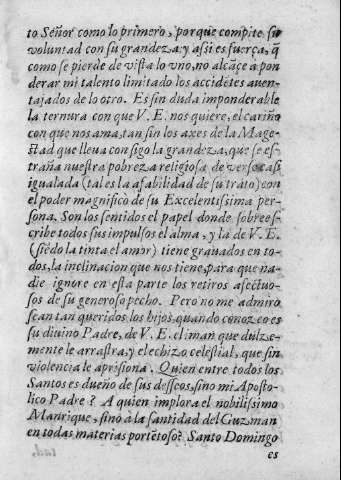 to Señor como lo primero, porque compite su
voluntad con su grandeza y assi es fuerça, q̃
como se pierde de vista lo vno, no alcãçe a pon
derar mi talento limitado los accidẽtes auen-
tajados de lo otro. Es sin duda imponderable
la ternura con que V. E. nos quiere, el cariño
con que nos ama, tan sin los axes de la Mage-
stad que lleua consigo la grandeza, que se es-
traña nuestra pobreza religiosa de verse casi
igualada (tal es la afabilidad de su trato) con
el poder magnifico de su Excelentissima per-
sona. Son los sentidos el papel donde sobreescribe
cribe todos sus impulsos el alma, y la de V. E.
(siẽdo la tinta el amor) tiene grauados en to-
dos, la inclinacion que nos tiene, para que na-
die ignore en esta parte los retiros afectuo-
sos de su generoso pecho. Pero no me admiro
sean tan queridos los hijos, quando conozco es
su diuino Padre, de V. E. el iman que dulze-
mente le arrastra, y el echizo celestial, que sin
violencia le aprisiona. Quien entre todos los
Santos es dueño de sus desseos, sino mi Aposto-
lico Padre? A quien implora el nobilissimo
Manrique, sino à la santidad del Guzman
en todas materias portẽtoso? Santo Domingo
es